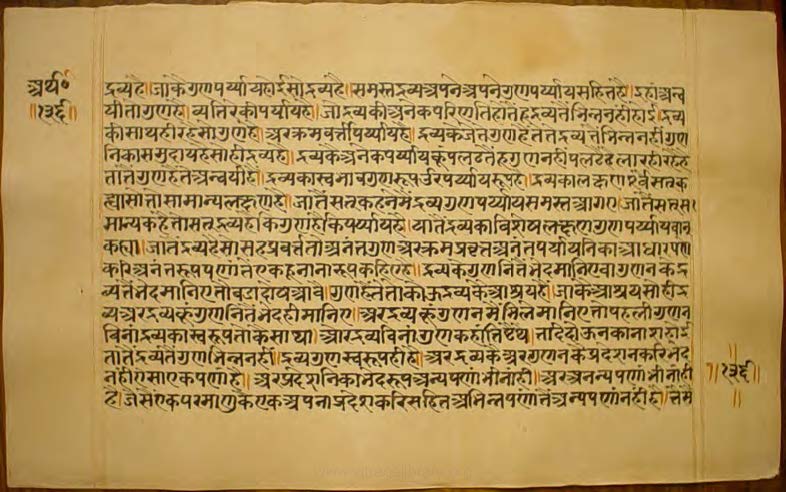 अर्थ॰
॥१३६॥
द्रव्य है। जाकै गुणपर्य्याय होई सो द्रव्य है। समस्त द्रव्य अपने अपने गुणपर्य्याय सहित है। इहां अन्व
यी तो गुण है। व्यतिरेकी पर्याय है। जो द्रव्य की अनेक परिणति होतै हू द्रव्यतै भिन्न नही होई। द्रव्य
की साथ ही रहै सो गुण है। अर क्रमवर्त्ती पर्य्याय है। द्रव्य कै जेते गुण है तेते द्रव्यतै भिन्न नही गुण
निका समुदाय है सो ही द्रव्य है। द्रव्य कै अनेक पर्य्याय कूं पलटतै हू गुण नही पलटै है लार ही रहै है
तातै गुण है ते अन्वयी है। द्रव्य का स्वभाव गुणरूप अर पर्य्यायरूप है। द्रव्य का लक्षण सत्क
ह्या सो तो सामान्य लक्षण है। जातै सत् कहनेमै द्रव्य गुण पर्य्याय समस्त आगए। जातै सत् स
मान्य कहै तो सत् द्रव्य है कि गुण है कि पर्य्याय है। यातै द्रव्य का विशेष लक्षण गुणपर्य्यायवान
कह्या। जातै द्रव्य है सो सह प्रवर्त्तते अनंत गुण अर क्रम प्रवृत्त अनंत पर्याय निका आधारपणा
करि अनंतरूपपणातै एक हू नानारूप कहिए है। द्रव्य कै गुणनितै भेद मानिए वा गुणन कै द्र
व्यतै भेद मानिए तो बडा दोष आवै। गुण है ते तो कोऊ द्रव्य कै आश्रय है। जाकै आश्रय सो ही द्र
व्य अर द्रव्य कूं गुणनितै भेद ही मानिए। अर द्रव्य कूं गुणनमै भिल मानिए तो पहली गुणन
विना द्रव्य का स्वरूप तो कैसा था। अर द्रव्य विना गुण कहां तिष्ठै थे। तदि दोऊनका नाश होई
तातै द्रव्यतै गुण भिन्न नही। द्रव्य गुणस्वरूप ही है। अर द्रव्य कै अर गुणन कै प्रदेशन करि भेद
नही ऐसा एकपणा है। अर प्रदेशनिका भेदरूप अन्यपणा भी नाही। अर अनन्यपणा भी नाही
है। जैसै एक परमाणु कै एक अपना प्रदेश करि सहित अभिन्नपणातै अन्यपणा नही है। तैसै
॥१३६॥